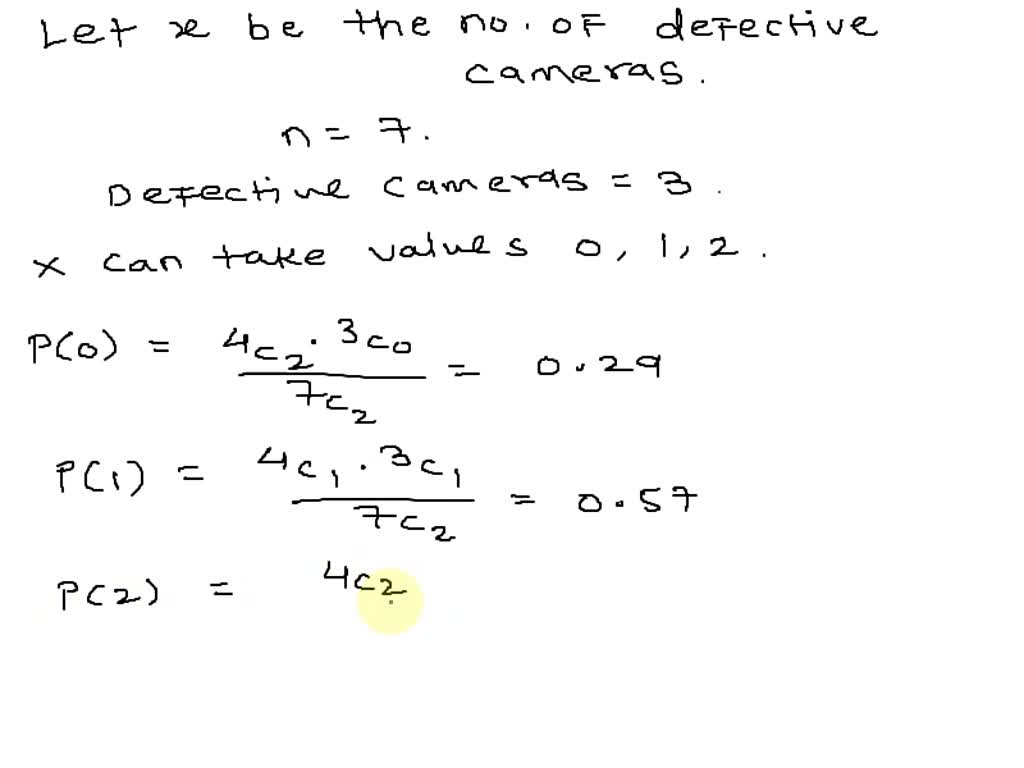 Let x be the no. of defective
cameras.
n = 7.
Defective cameras = 3.
x can take values 0, 1, 2.
P(0) = 4c₂ . 3c₀ / 7c₂ = 0.29
P(1) = 4c₁ . 3c₁ / 7c₂ = 0.57
P(2) = 4c₂